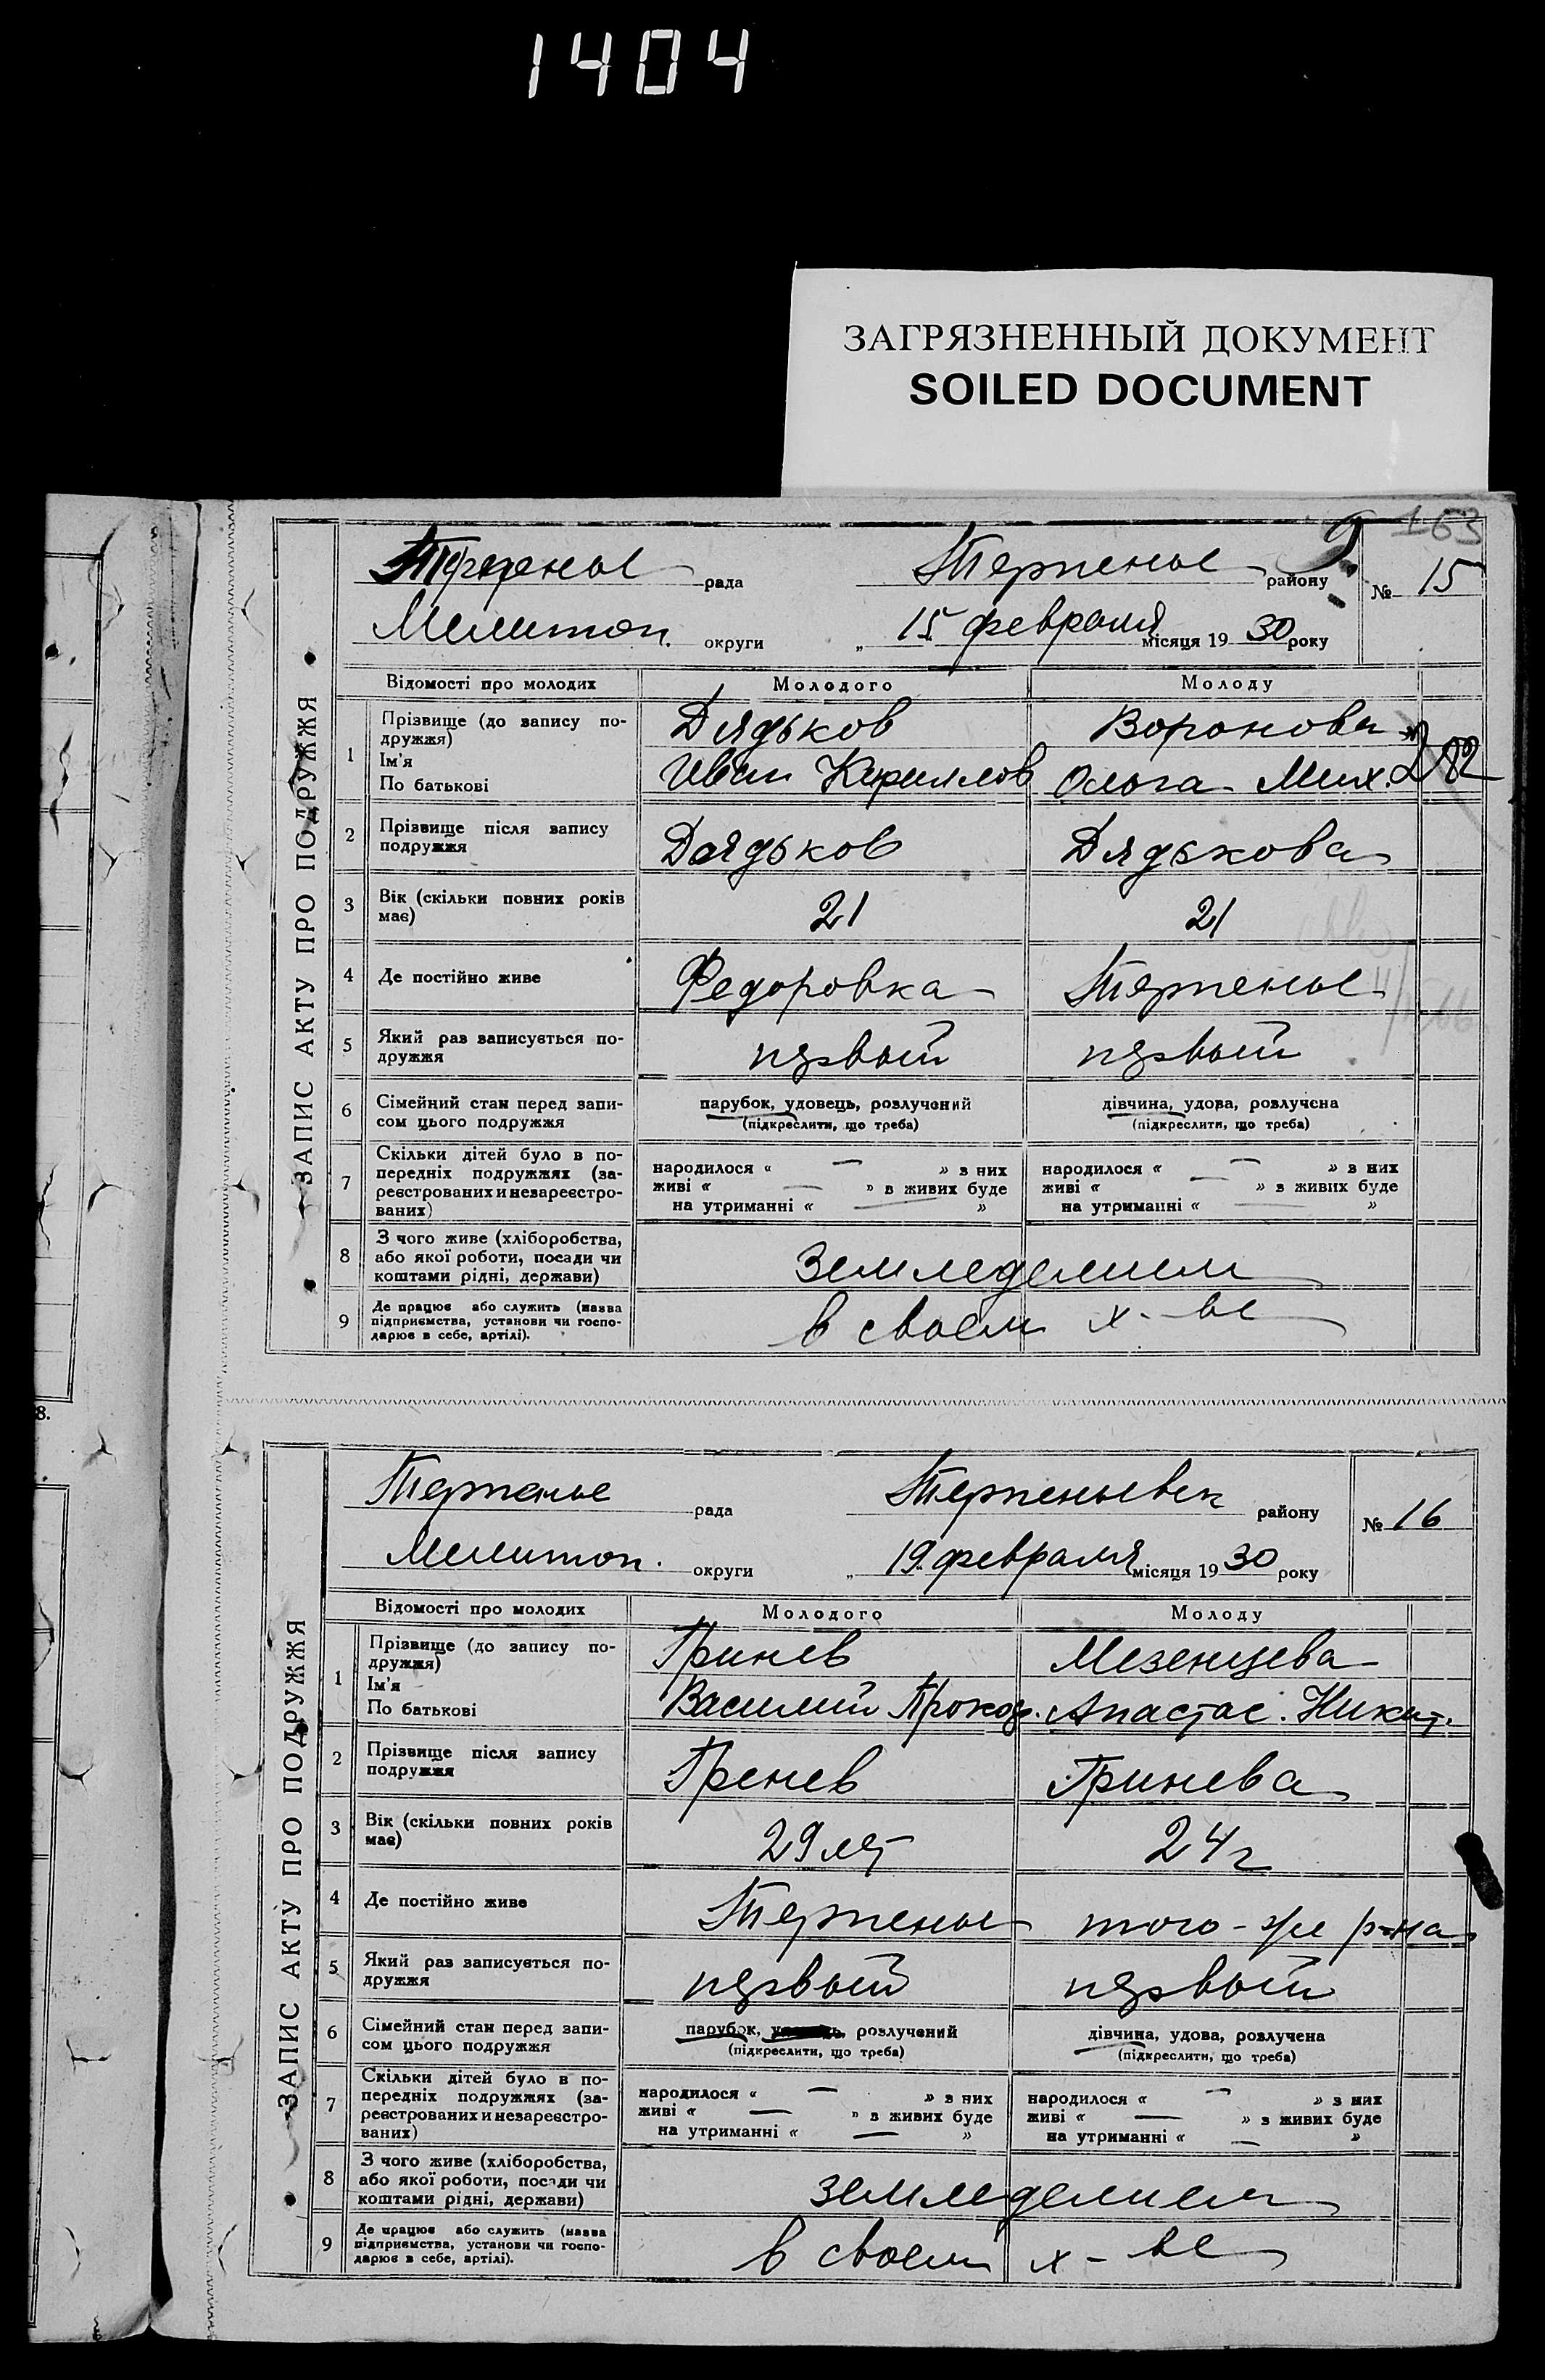 1404
ЗАГРЯЗНЕННЫЙ ДОКУМЕНТ
SOILED DOCUMENT
163
ЗАПИС АКТУ ПРО ПОДРУЖЖЯ
Терпенье рада Терпенье району № 15
Мелитоп. округи „ 15 февраля місяця 19 30 року
Відомості про молодих Молодого Молоду
1 Прізвище (до запису по-
дружжя) Дядьков Воронова
Ім'я
По батькові Иван Кириллов Ольга Мих. 282
2 Прізвище після запису
подружжя Дядьков Дядькова
3 Вік (скільки повних років
має) 21 21
4 Де постійно живе Федоровка Терпенье
5 Який раз записується по-
дружжя первый первый
6 Сімейний стан перед запи-
сом цього подружжя парубок, удовець, розлучений дівчина, удова, розлучена
(підкреслити, що треба) (підкреслити, що треба)
7 Скільки дітей було в по-
передніх подружжях (за-
реєстрованих и незареєстро-
ваних)
народилося « — » з них народилося « — » з них
живі « — » в живих буде живі « — » з живих буде
на утриманні « — » на утриманні « — »
8 З чого живе (хліборобства,
або якої роботи, посади чи
коштами рідні, держави) Земледелием
9 Де працює або служить (назва
підприємства, установи чи госпо-
дарює в себе, артілі). в своем х-ве
8.
ЗАПИС АКТУ ПРО ПОДРУЖЖЯ
Терпенье рада Терпеньевск району № 16
Мелитоп. округи „ 19. февраля місяця 19 30 року
Відомості про молодих Молодого Молоду
1 Прізвище (до запису по-
дружжя) Гринев Мезенцева
Ім'я
По батькові Василий Прокоф. Анастас. Никит.
2 Прізвище після запису
подружжя Гренев Гринева
3 Вік (скільки повних років
має) 29 лет 24 г
4 Де постійно живе Терпенье того-же р-на
5 Який раз записується по-
дружжя первый первый
6 Сімейний стан перед запи-
сом цього подружжя парубок, розлучений дівчина, удова, розлучена
(підкреслити, що треба) (підкреслити, що треба)
7 Скільки дітей було в по-
передніх подружжях (за-
реєстрованих и незареєстро-
ваних)
народилося « — » з них народилося « — » з них
живі « — » з живих буде живі « — » з живих буде
на утриманні « — » на утриманні « — »
8 З чого живе (хліборобства,
або якої роботи, посади чи
коштами рідні, держави) земледелием
9 Де працює або служить (назва
підприємства, установи чи госпо-
дарює в себе, артілі). в своем х-ве